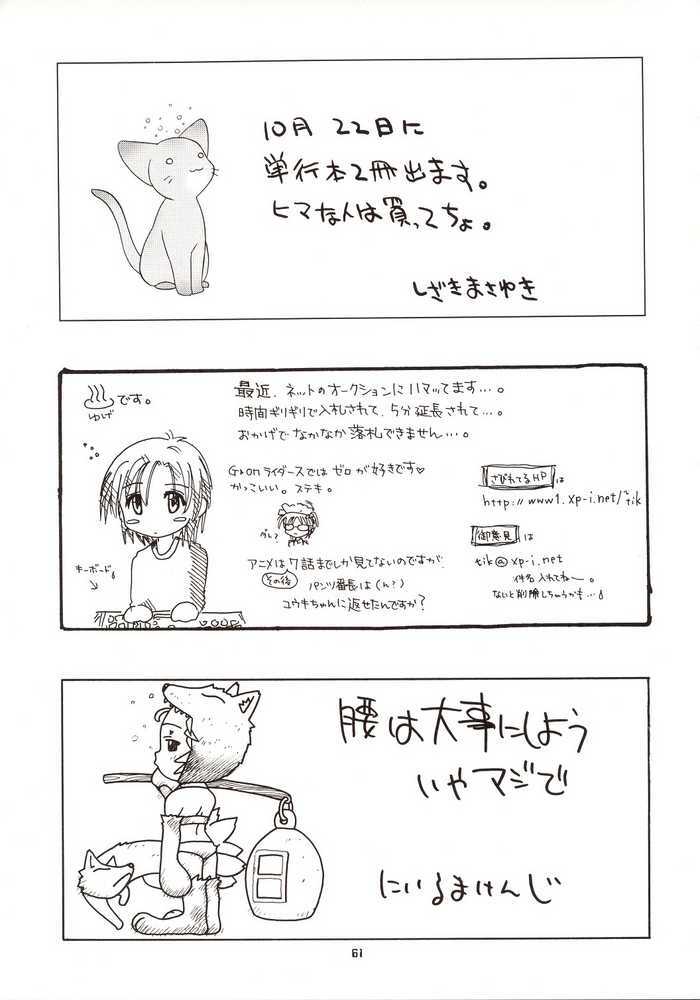 10月 22日に
単行本2冊出ます。
ヒマな人は買ってちょ。
しざきまさゆき
♨です。
ゆげ
最近、ネットのオークションにハマッてます…。
時間ギリギリで入札されて、5分延長されて…。
おかげでなかなか落札できません…。
G-onライダースではゼロが好きです♡
かっこいい。ステキ。
ダレ?
キーボード
アニメは7話までしか見てないのですが、
その後 パンツ番長は(ん?)
ユウキちゃんに返せたんですか?
さびれてるHPは
http://www1.xp-i.net/~tik
御意見は
tik@xp-i.net
件名入れてねー。
ないと削除しちゃうかも…
腰は大事にしよう
いやマジで
にいるまけんじ
61